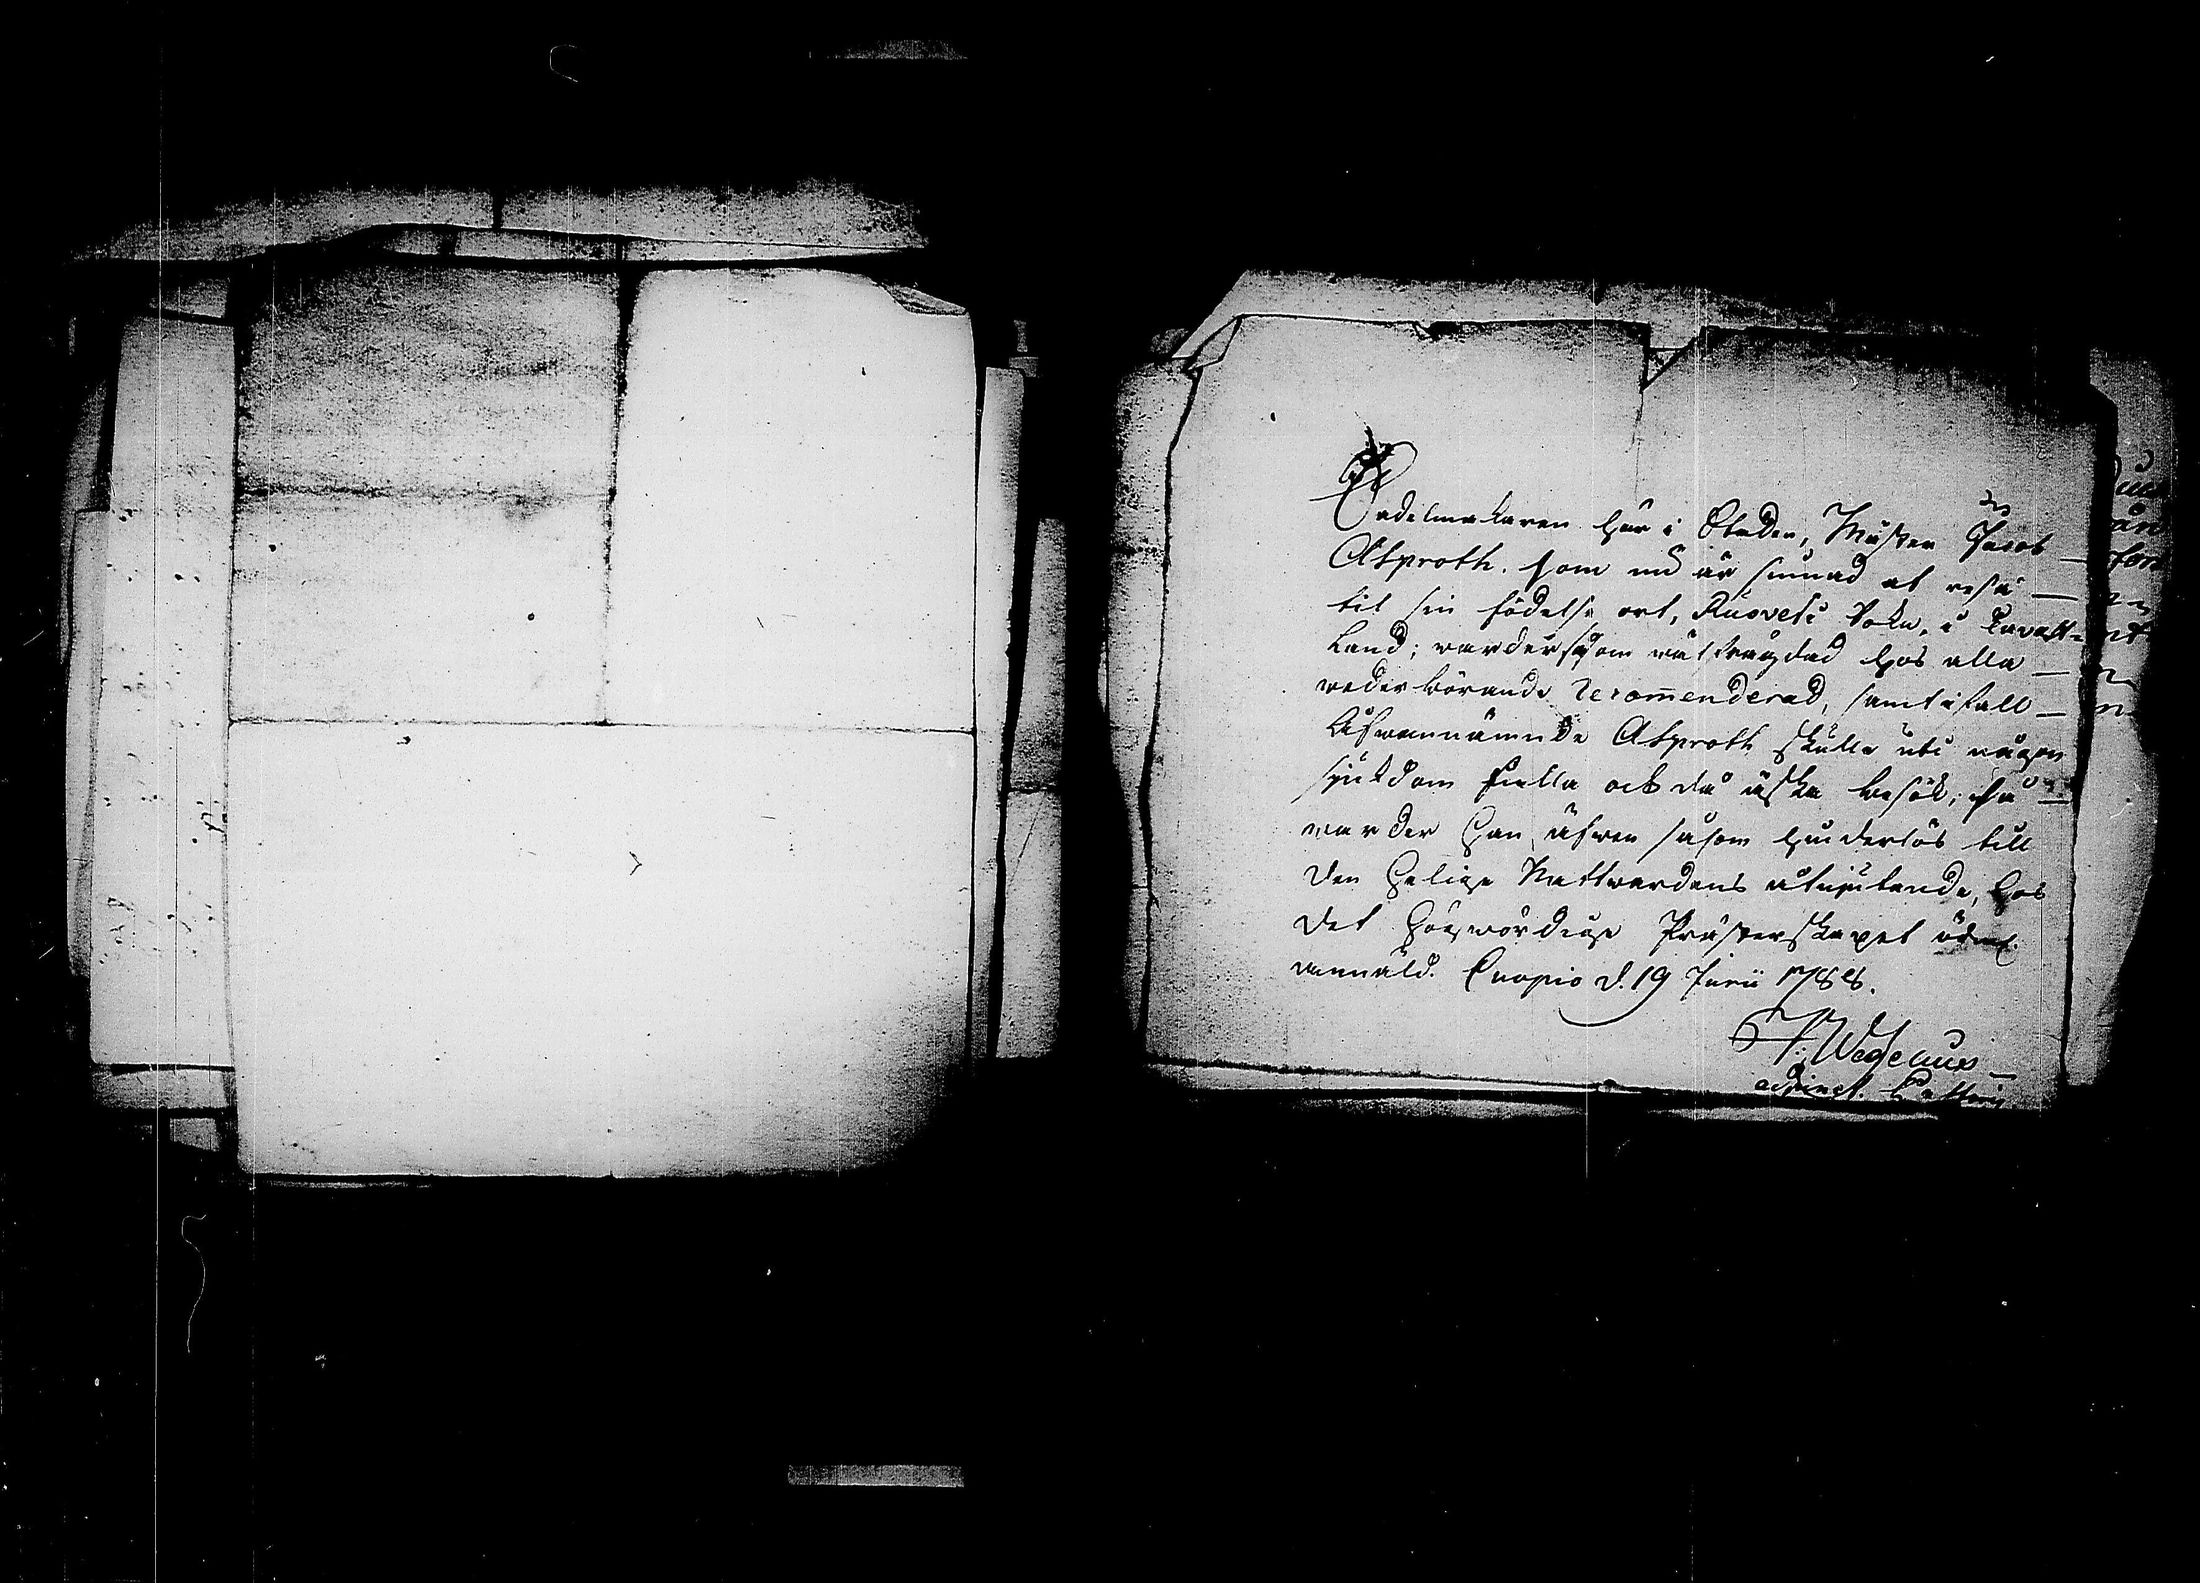 Sadelmakaren här i Staden, Mäster Jacob
Asproth. som nu är sinnad at resa
til sin födelse ort, Ruovesi Sokn, i Tavast-
land; warder såsom wälfrägdad hos alla
wederbörande recommenderad, samt ifall
äfwannämnde Asproth skulle uti någon
siukdom fialla och då äska besök; så
warder han äfwen såsom hinderlös till
den helige Nattwardens åtniutande, hos
det högwördige Prästerskapet ödmj.
anmäld. Cuopio d. 19 Junii 1788.
Wegelius
adjunct.